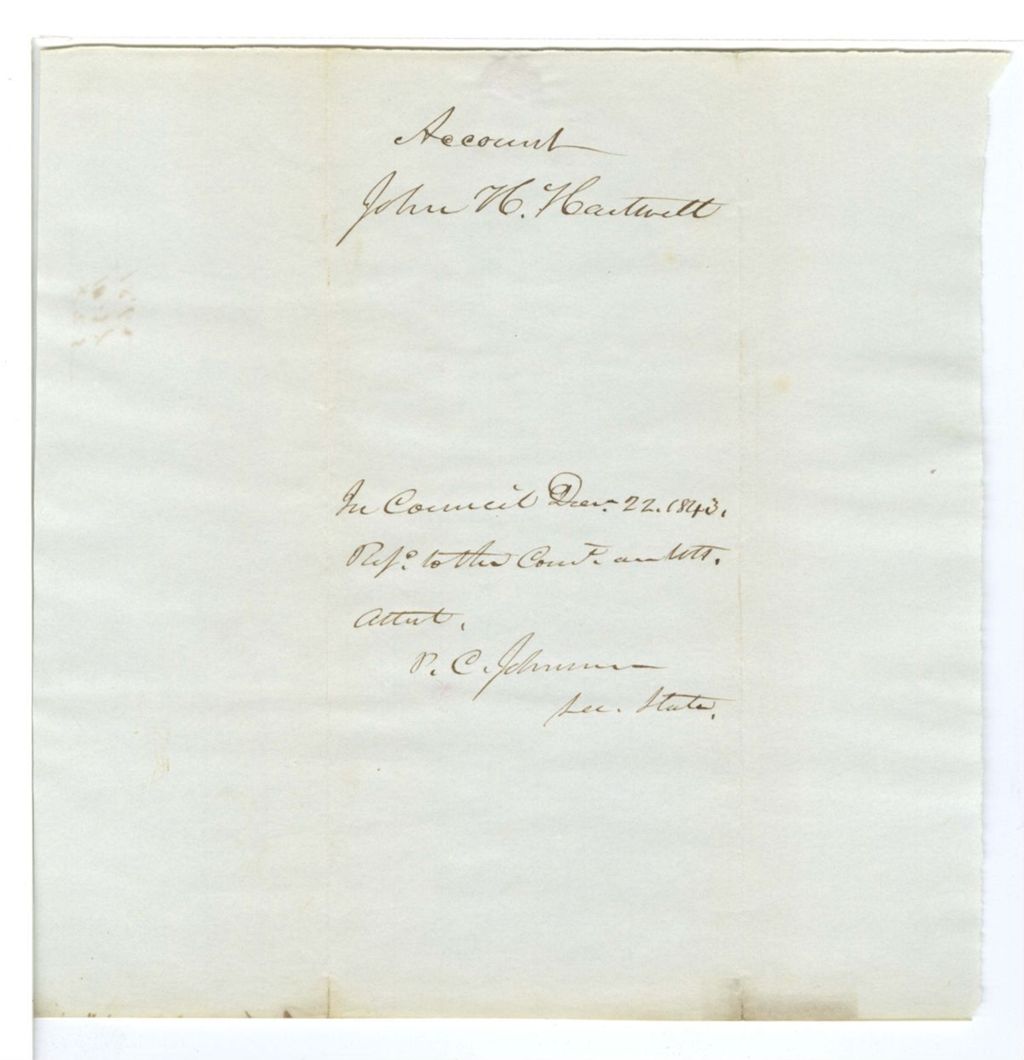 Account
John H. Hartwell
In Council Decr. 22. 1843.
Refd. to the Comee. on Accts.
Attest,
P. C. Johnson
Sec. State.